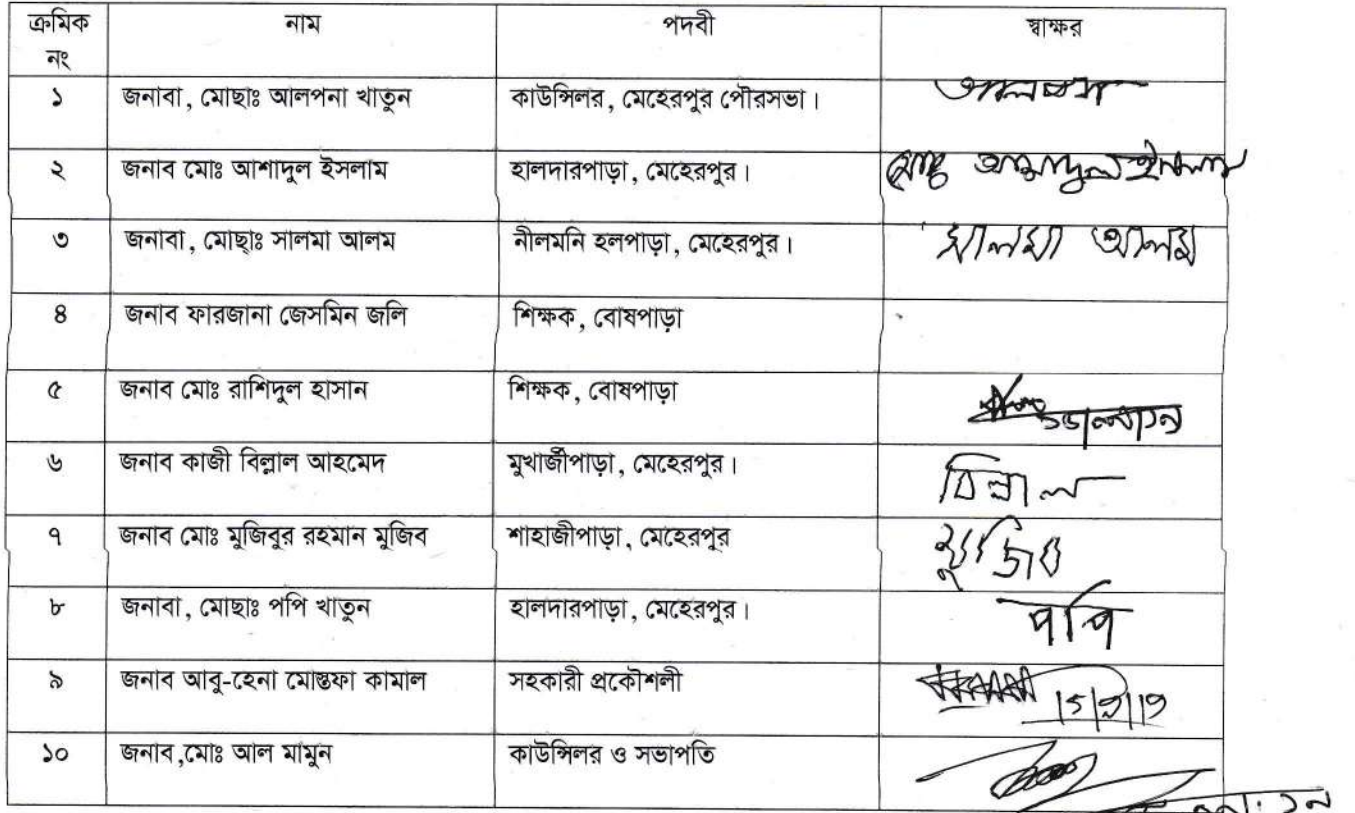 ক্রমিক নং নাম পদবী স্বাক্ষর
১ জনাবা, মোছাঃ আলপনা খাতুন কাউন্সিলর, মেহেরপুর পৌরসভা। আলপনা
২ জনাব মোঃ আশাদুল ইসলাম হালদারপাড়া, মেহেরপুর। মোঃ আশাদুল ইসলাম
৩ জনাবা, মোছাঃ সালমা আলম নীলমনি হলপাড়া, মেহেরপুর। সালমা আলম
৪ জনাব ফারজানা জেসমিন জলি শিক্ষক, বোষপাড়া
৫ জনাব মোঃ রাশিদুল হাসান শিক্ষক, বোষপাড়া
৬ জনাব কাজী বিল্লাল আহমেদ মুখার্জীপাড়া, মেহেরপুর। বিল্লাল
৭ জনাব মোঃ মুজিবুর রহমান মুজিব শাহাজীপাড়া, মেহেরপুর মুজিব
৮ জনাবা, মোছাঃ পপি খাতুন হালদারপাড়া, মেহেরপুর। পপি
৯ জনাব আবু-হেনা মোস্তফা কামাল সহকারী প্রকৌশলী
১০ জনাব,মোঃ আল মামুন কাউন্সিলর ও সভাপতি